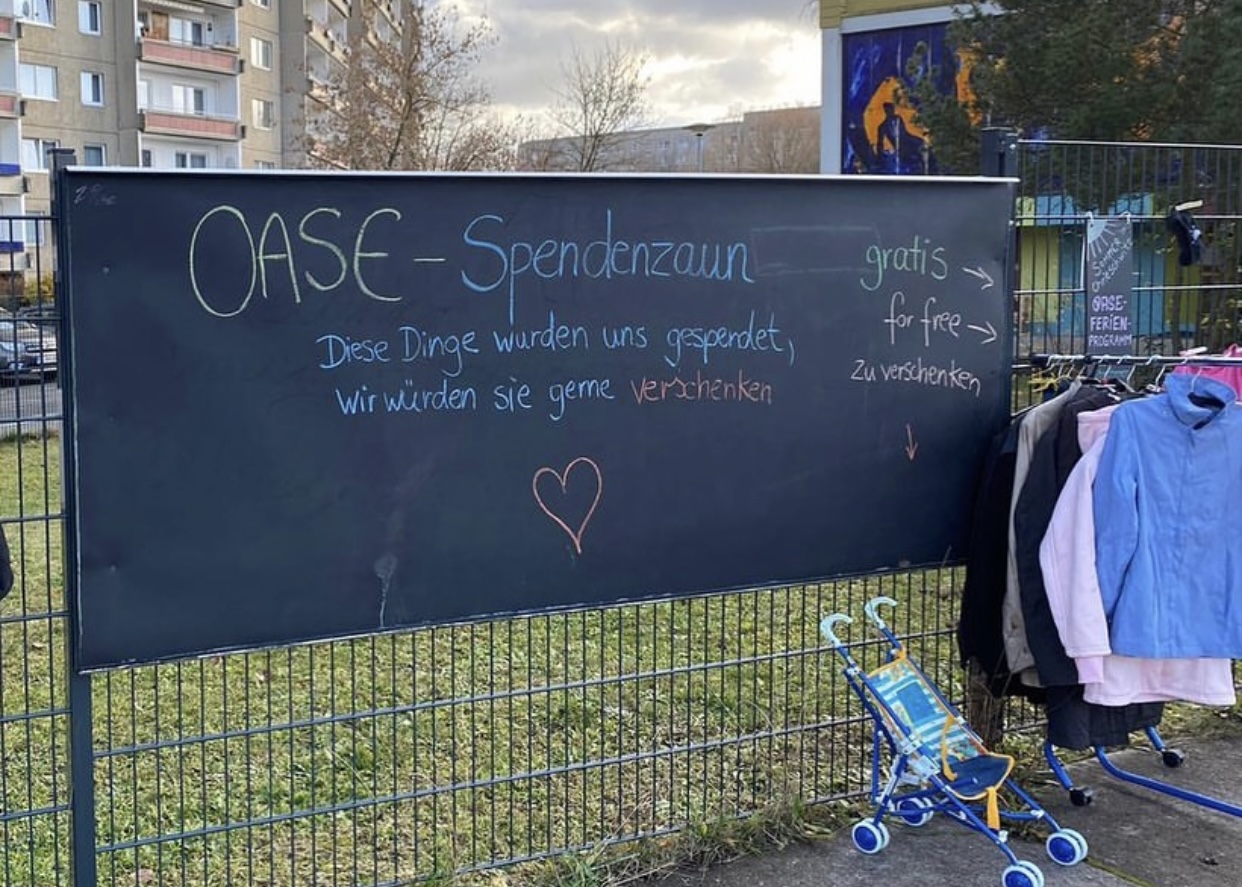 OASE - Spendenzaun
Diese Dinge wurden uns gespendet,
wir würden sie gerne verschenken
gratis →
for free →
zu verschenken
↓
SOMMER
OASE-
FERIEN-
PROGRAMM